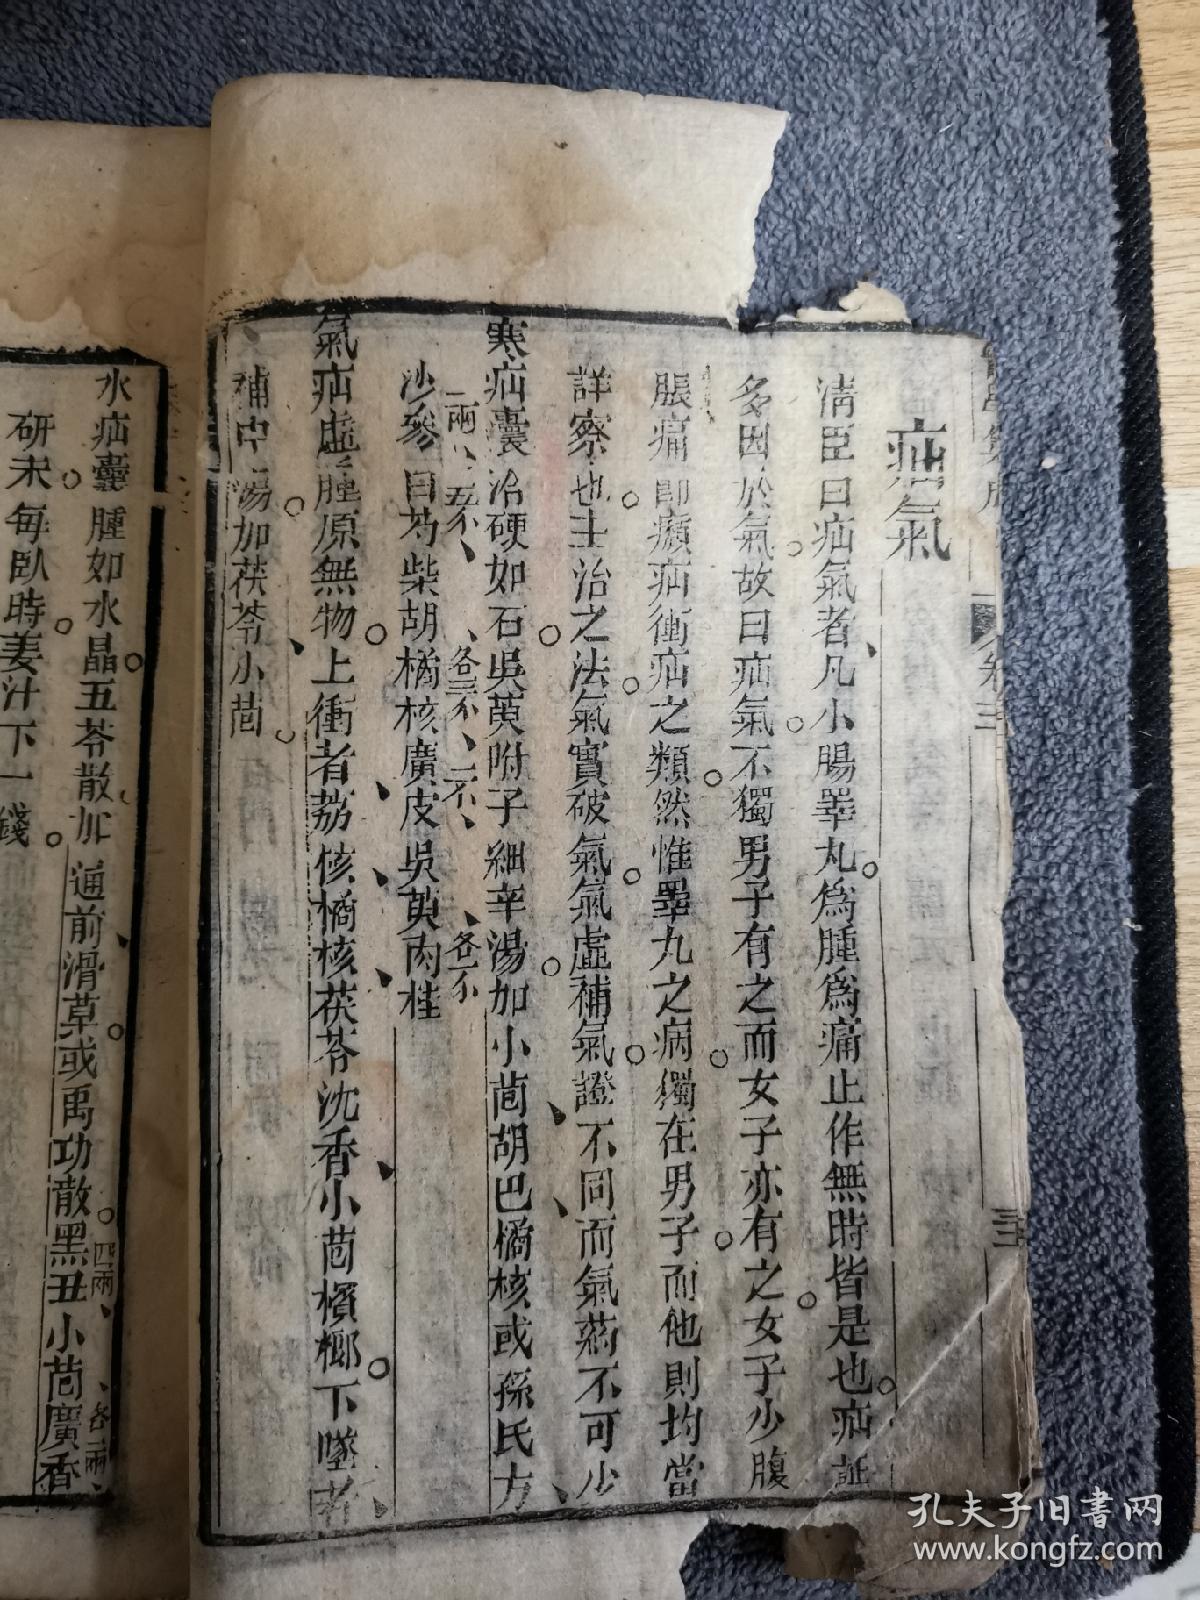 卷三
三
疝氣
淸臣曰疝氣者凡小腸睪丸爲腫爲痛止作無時皆是也疝証
多因於氣故曰疝氣不獨男子有之而女子亦有之女子少腹
脹痛卽㿗疝衝疝之類然惟睪丸之病獨在男子而他則均當
詳察也主治之法氣實破氣氣虛補氣證不同而氣葯不可少
寒疝囊冶硬如石吳萸附子細辛湯加小茴胡巴橘核或孫氏方
沙參一兩白芍五
柴胡橘核廣皮吳萸肉桂
氣疝虛腫原無物上衝者荔核橘核茯苓沈香小茴檳榔下墜者
補中湯加茯苓小茴
水疝囊腫如水晶五苓散加通前滑草或禹功散黑丑四兩小茴廣香各一兩
研末每臥時姜汁下一錢
孔夫子旧书网
www.kongfz.com